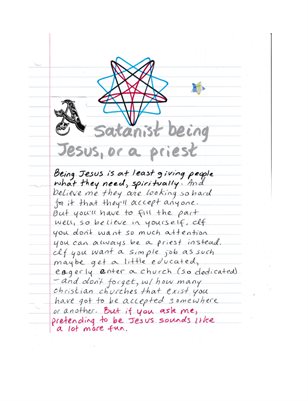 A
Satanist being
Jesus, or a priest
Being Jesus is at least giving people
what they need, spiritually. And
believe me they are looking so hard
for it that they'll accept anyone.
But you'll have to fill the part
well, so believe in yourself. If
you don't want so much attention
you can always be a priest instead.
If you want a simple job as such
maybe get a little educated,
eagerly enter a church (so dedicated)
- and don't forget, w/ how many
christian churches that exist you
have got to be accepted somewhere
or another. But if you ask me,
pretending to be Jesus sounds like
a lot more fun.